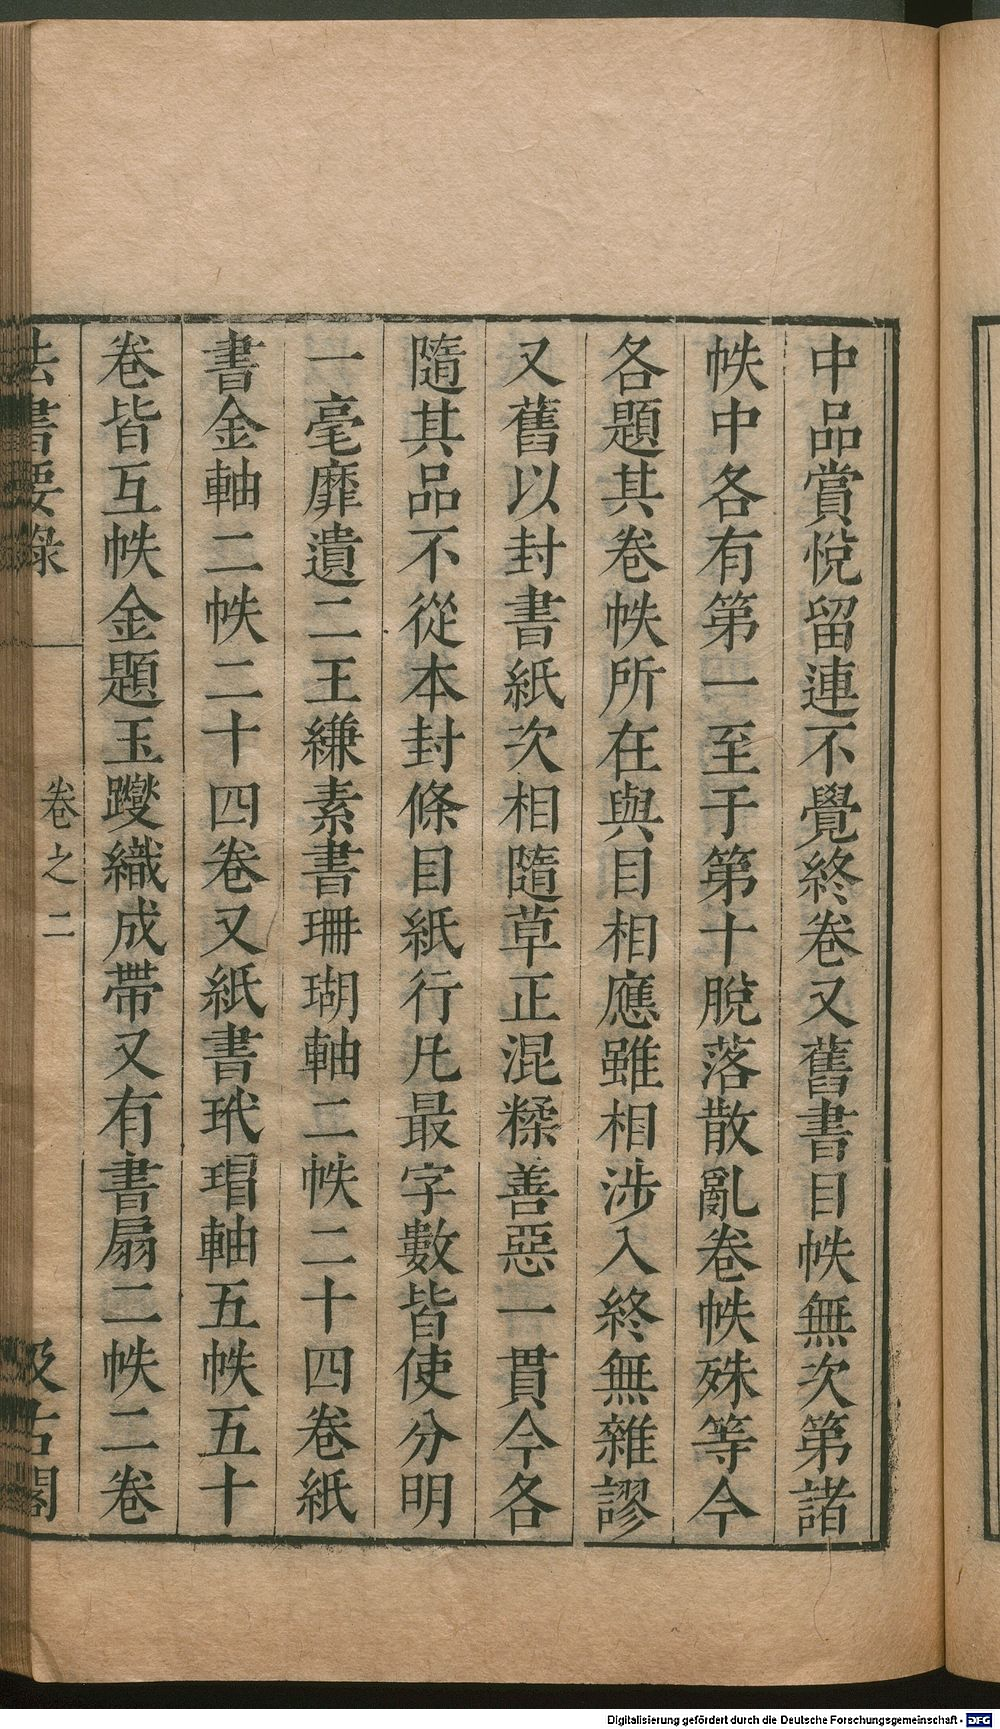 中品賞悅留連不覺終卷又舊書目帙無次第諸
帙中各有第一至于第十脫落散亂卷帙殊等今
各題其卷帙所在與目相應雖相涉入終無雜謬
又舊以封書紙次相隨草正混糅善惡一貫今各
隨其品不從本封條目紙行凡最字數皆使分明
一毫靡遺二王縑素書珊瑚軸二帙二十四卷紙
書金軸二帙二十四卷又紙書玳瑁軸五帙五十
卷皆互帙金題玉躞織成帶又有書扇二帙二卷
法書要錄
卷之二
汲古閣
Digitalisierung gefördert durch die Deutsche Forschungsgemeinschaft - DFG